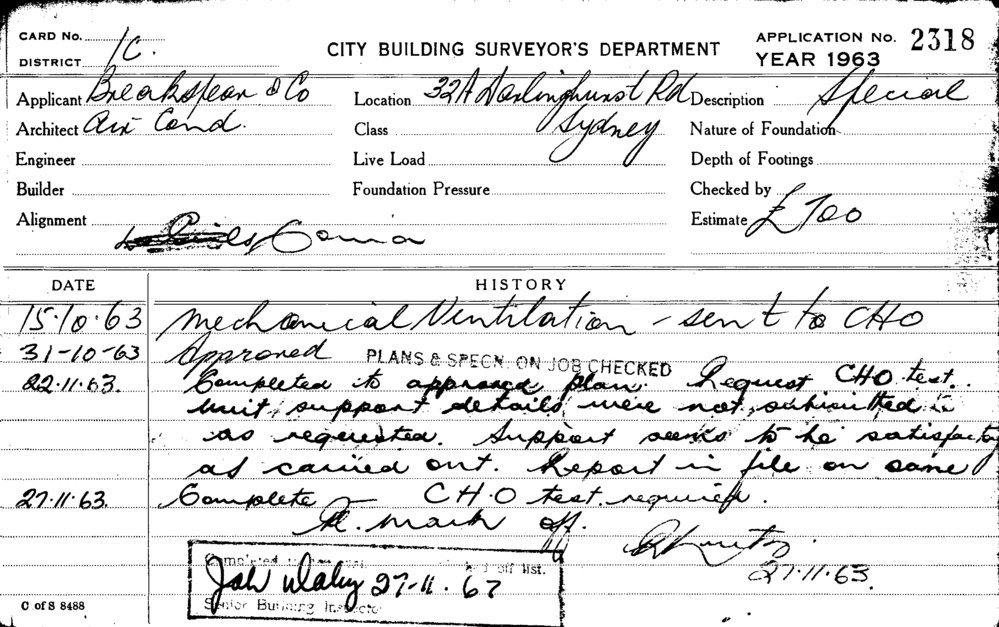 CARD No. 1C.
DISTRICT
CITY BUILDING SURVEYOR'S DEPARTMENT
APPLICATION No. 2318
YEAR 1963
Applicant Breakspear & Co
Location 32A Darlinghurst Rd
Sydney
Description Special
Architect Air Cond.
Class
Nature of Foundation
Engineer
Live Load
Depth of Footings
Builder
Foundation Pressure
Checked by
Alignment
Estimate £700
DATE HISTORY
15.10.63 Mechanical Ventilation - sent to CHO
31-10-63 Approved PLANS & SPECN. ON JOB CHECKED
22.11.63. Completed to approved plan. Request CHO test.
Unit support details were not submitted
as requested. Support seems to be satisfactory
as carried out. Report in file on same
27.11.63. Complete - CH.O test required.
mark off.
27.11.63.
Completed off list.
27-11-63
Senior Building Inspector
C of S 8488